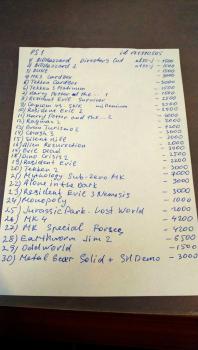 PS1
1) Biohazard Director's Cut - 1500
2) Biohazard 2 - 1500
3) Duke - 3000
4) MK3 Cardbox - 3000
5) Tekken Cardbox - 3000
6) Tekken 3 Platinum - 1500
7) Harry Potter and the... 1 - 2000
8) Resident Evil Survivor - 2500
9) Capcom vs. SNK - 2500
10) Resident Evil 2 - 2500
11) Harry Potter and the... 2 - 4000
12) Rayman 2 - 3000
13) Gran Turismo 2 - 2500
14) Crash 3 - 3000
15) Silent Hill - 4000
16) Alien Resurrection - 3000
17) Evil Dead - 2500
18) Dino Crisis 2 - 2500
19) Resident Evil - 3000
20) Tekken 2 - 4000
21) Mythology Sub-Zero MK - 3000
22) Alone in the Dark - 3000
23) Resident Evil 3 Nemesis - 3000
24) Monopoly - 1000
25) Jurassic Park. Lost World - 2000
26) MK 4 - 4200
27) MK Special Forces - 4200
28) Earthworm Jim 2 - 6500
29) Oddworld - 1500
30) Metal Gear Solid + SH Demo - 3000